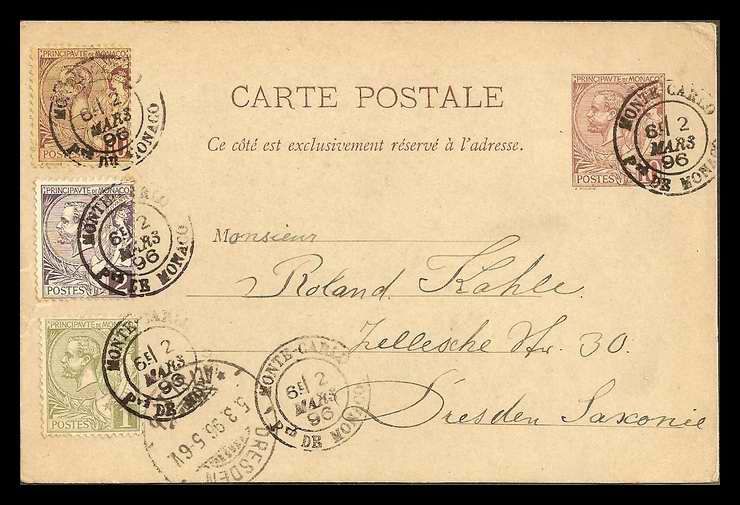 PRINCIPAVTE DE MONACO
POSTES
MONTE-CARLO
6E 2
MARS
96
Pté DE MONACO
CARTE POSTALE
Ce côté est exclusivement réservé à l'adresse.
PRINCIPAVTE DE MONACO
POSTES 10
MONTE-CARLO
6E 2
MARS
96
Pté DE MONACO
POSTES 2
MONTE-CARLO
6E 2
MARS
96
Pté DE MONACO
Monsieur
Roland Kahle
Zellesche Str. 30.
Dresden Saxonie
PRINCIPAVTE DE MONACO
POSTES 1
MONTE-CARLO
6E 2
MARS
96
Pté DE MONACO
MONTE-CARLO
6E 2
MARS
96
Pté DE MONACO
DRESDEN
5.3.96.5-6V.